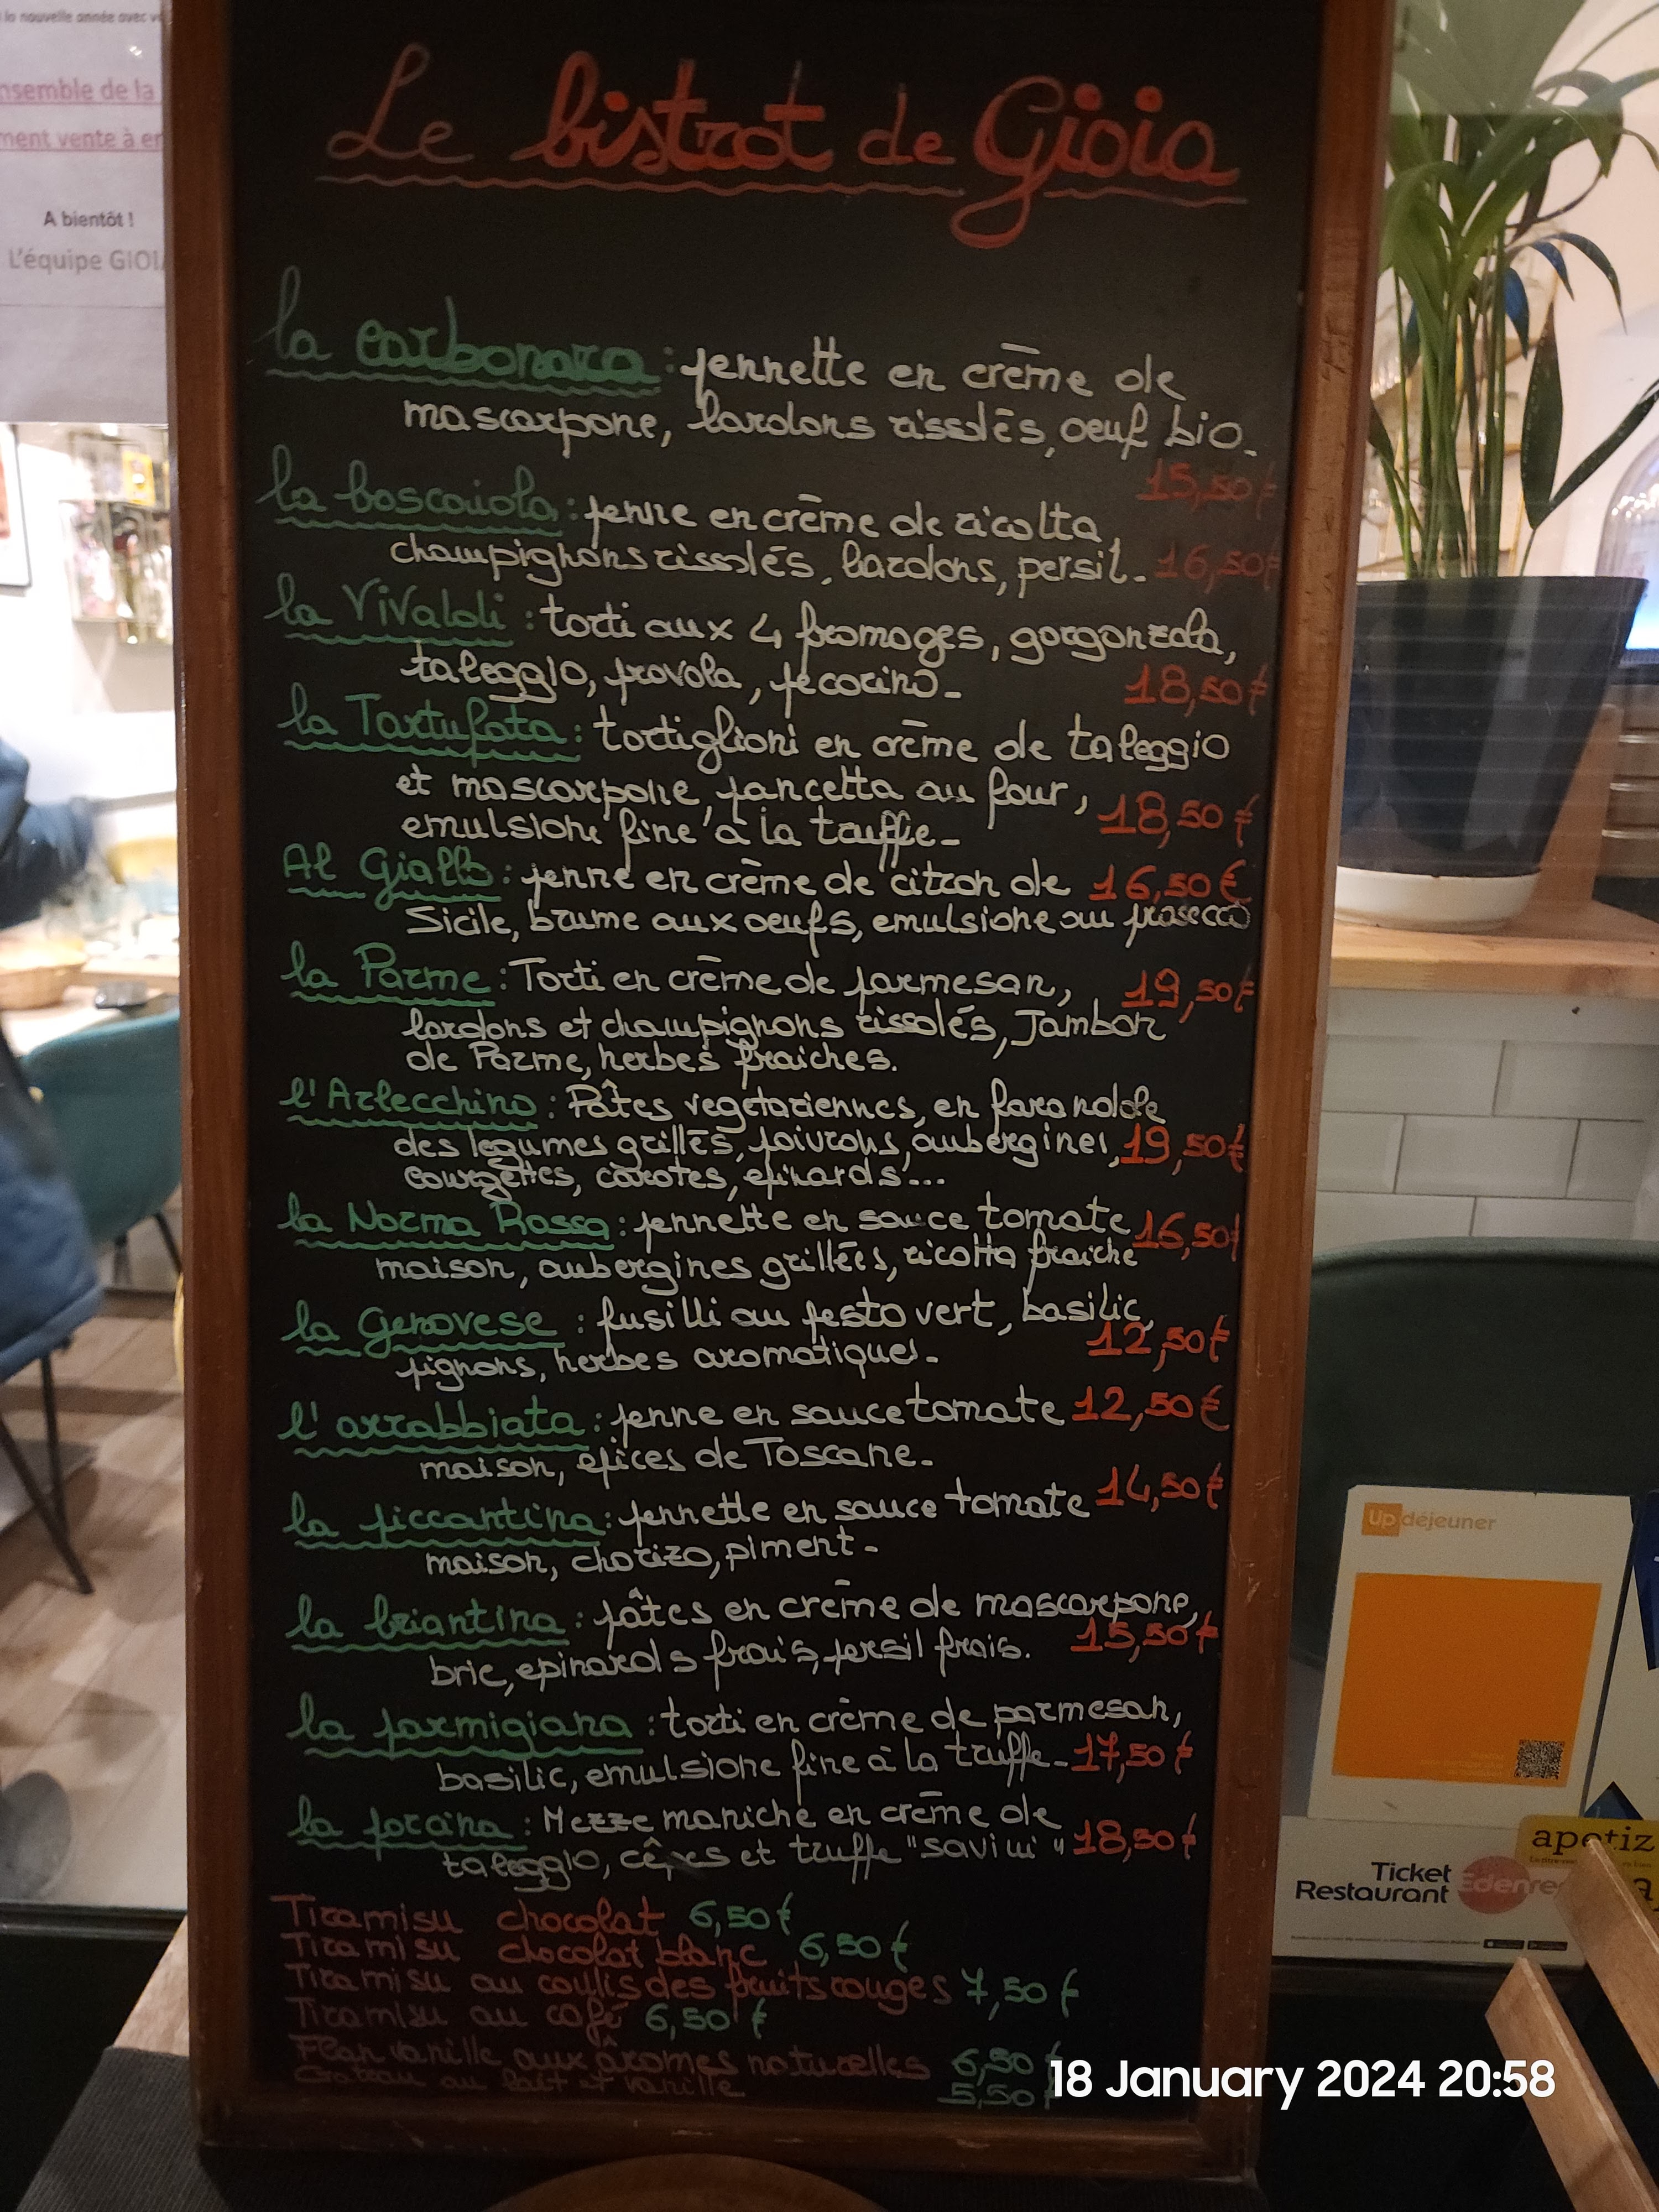 la nouvelle année avec
nsemble de la
ment vente à
A bientôt !
L'équipe GIOI
Le bistrot de Gioia
la carbonara : pennette en crème de
mascarpone, lardons rissolés, oeuf bio.
15,50€
la boscaiola : penne en crème de ricotta,
champignons rissolés, lardons, persil. 16,50€
la Vivaldi : torti aux 4 fromages, gorgonzola,
taleggio, provola, pecorino. 18,50€
la Tartufata : tortiglioni en crème de taleggio
et mascarpone, pancetta au four, 18,50€
emulsione fine à la truffe.
Al Giallo : penne en crème de citron de 16,50€
Sicile, brume aux oeufs, emulsione au prosecco
la Parme : Torti en crème de parmesan, 19,50€
lardons et champignons rissolés, Jambon
de Parme, herbes fraiches.
l'Arlecchino : Pâtes vegetariennes, en faranolde
des legumes grillés, poivrons, aubergines, 19,50€
courgettes, carotes, epinards...
la Norma Rossa : pennette en sauce tomate 16,50€
maison, aubergines grillées, ricotta fraiche
la Genovese : fusilli au pesto vert, basilic,
12,50€
pignons, herbes aromatiques.
l'arrabbiata : penne en sauce tomate 12,50€
maison, epices de Toscane.
la piccantina : pennette en sauce tomate 14,50€
maison, chorizo, piment.
la briantina : pâtes en crème de mascarpone,
brie, epinards frais, persil frais. 15,50€
la parmigiana : torti en crème de parmesan,
basilic, emulsione fine à la truffe. 17,50€
la porcina : Mezze maniche en crème de
taleggio, cêpes et truffe "savini" 18,50€
Tiramisu chocolat 6,50€
Tiramisu chocolat blanc 6,50€
Tiramisu au coulis des fruits rouges 7,50€
Tiramisu au café 6,50€
Flan vanille aux arômes naturelles 6,50€
Gateau au lait et vanille 5,50€
Up déjeuner
apetiz
Ticket
Restaurant
Edenred
18 January 2024 20:58